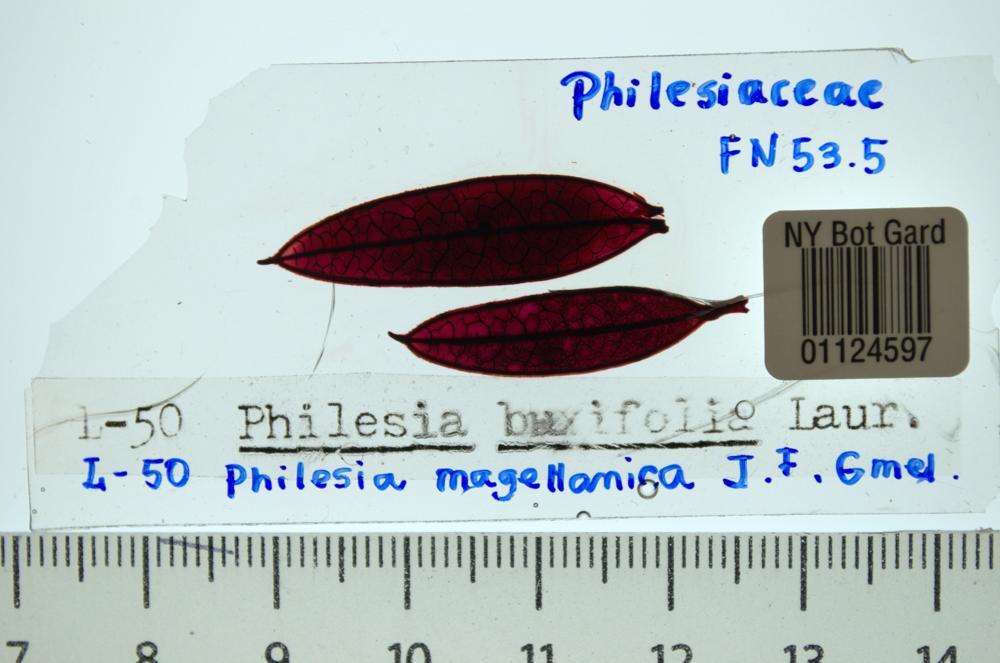 Philesiaceae
FN 53.5
NY Bot Gard
01124597
L-50 Philesia buxifolia Laur.
L-50 Philesia magellanica J.F. Gmel.
7 8 9 10 11 12 13 14